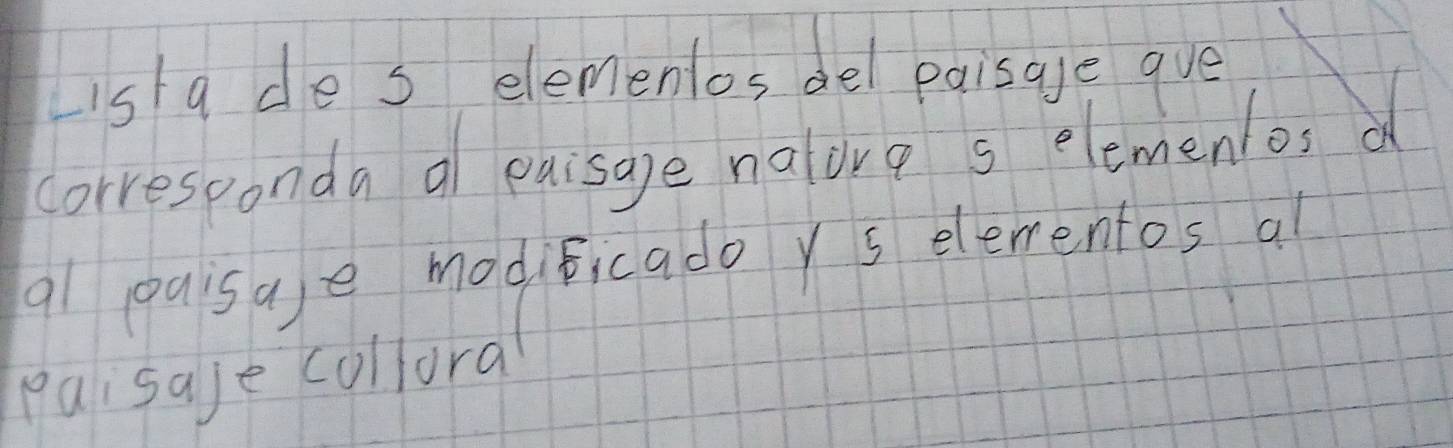 Lista de 5 elementos del paisaje que
corresponda al paisaje natura 5 elementos d
al paisaje modificado y 5 elementos al
paisaje coltural